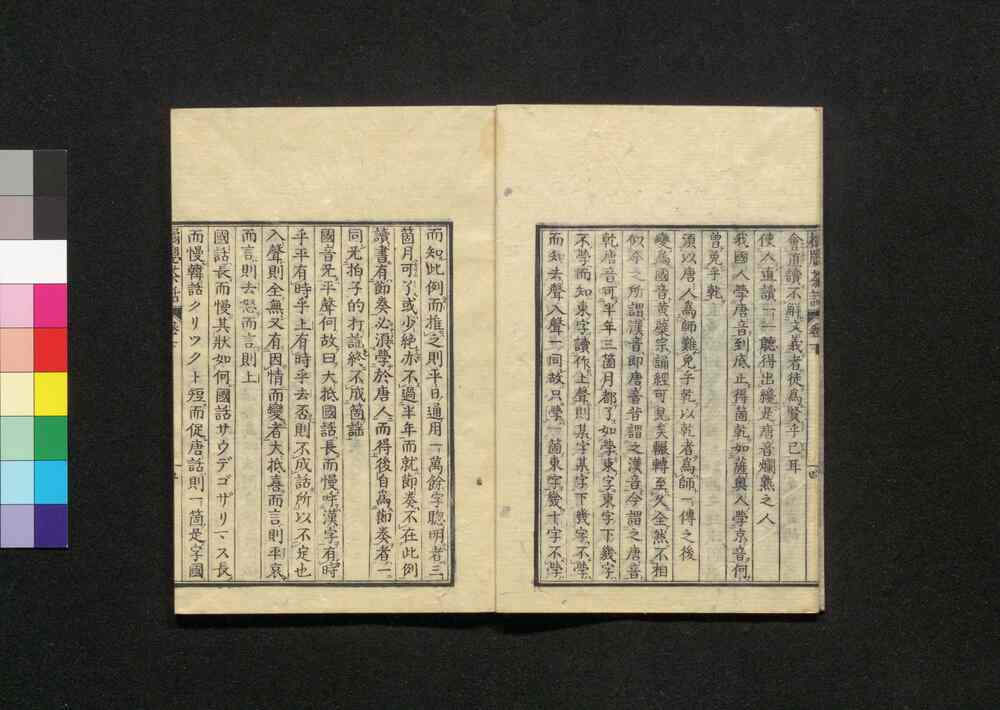 會通讀不解文義者徒爲賢乎已耳
使人通讀一一聽得出纔是唐音爛熟之人
我國人學唐音到底止得箇乾如薩奧人學京音何
曾免乎乾
須以唐人爲師難免乎乾以乾者爲師一傳之後
變爲國音黃檗宗誦經可見矣輾轉至久全然不相
似今之所謂漢音即唐音昔謂之漢音今謂之唐音
乾唐音可半年三箇月都了如學東字東字下幾字
不學而知東字讀作上聲則某字某字下幾字不學
而知去聲入聲一同故只學一箇東字幾十字不學
而知此例而推之則平日通用一萬餘字聰明者三
箇月可了或少絶亦不過半年而就節奏不在此例
讀書有節奏必須學於唐人而得後自爲節奏者一
同光拍子的打諢終不成箇謡
國音旡平聲何故曰大抵國話長而慢呼漢字有時
乎平有時乎上有時乎去否則不成話所以不定也
入聲則全無又有因情而變者大抵喜而言則平哀
而言則去怒而言則上
國話長而慢其狀如何國話サウデゴザリマス長
而慢韓話クリツクト短而促唐話則一箇是字國